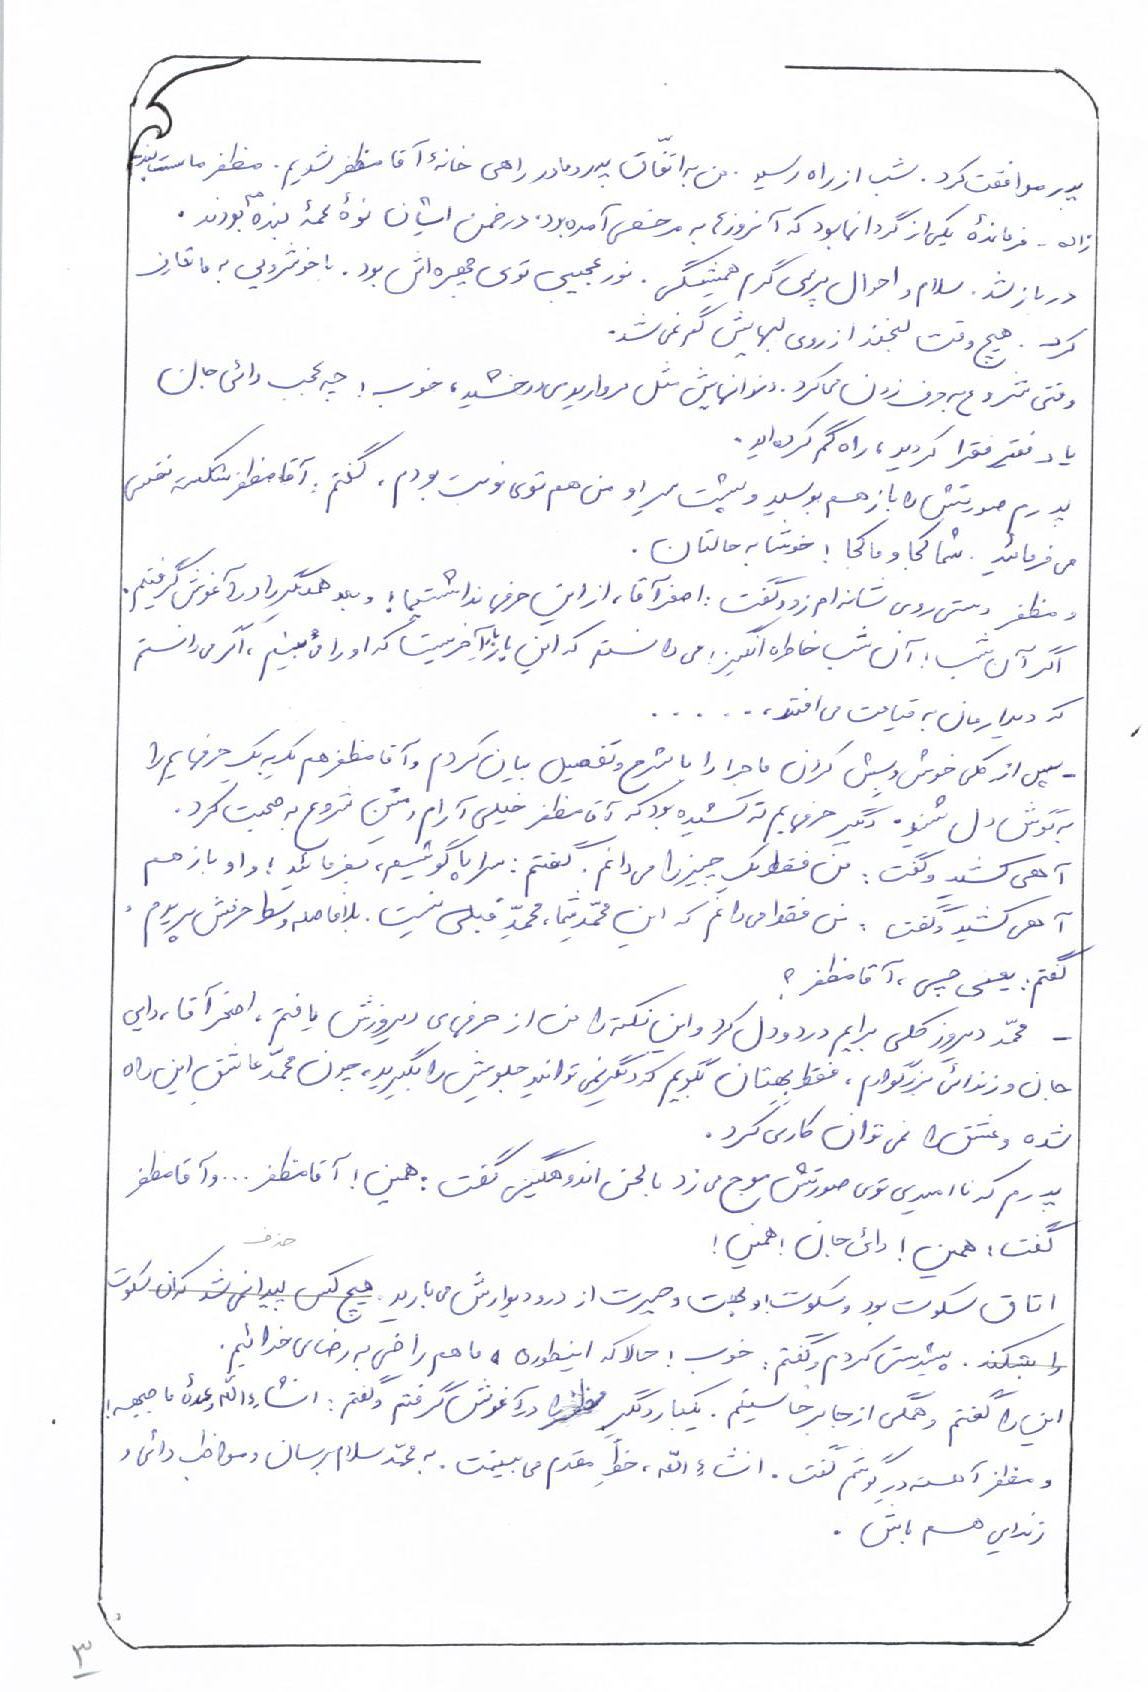 پدر موافقت کرد. شب از راه رسید. من به اتّفاق پدر و مادر راهی خانهٔ آقا مظفر شدیم. مظفر ماست بند
زاده - فرماندهٔ یکی از گردانها بود که آنروزها به مرخصی آمده بود. در ضمن ایشان نوهٔ عمهٔ بنده بودند.
در باز شد. سلام و احوال پرسی گرم همیشگی. نور عجیبی توی چهره‌اش بود. با خوشرویی به ما تعارف
کرد. هیچ وقت لبخند از روی لبهایش گم نمی‌شد.
وقتی شروع به حرف زدن می‌کرد. دندانهایش مثل مروارید می‌درخشید، خوب! چه عجب دائی جان
یاد فقیر فقرا کردید، راه گم کرده‌اید.
پدرم صورتش را باز هم بوسید و پشت سر او من هم توی نوبت بودم، گفتم: آقا مظفر شکسته نفسی
می‌فرمائید. شما کجا و ما کجا! خوشا به حالتان.
و مظفر دستی روی شانه‌ام زد و گفت: اصغر آقا، از این حرفها نداشتیم! و بعد همدیگر را در آغوش گرفتیم.
اگر آن شب! آن شب خاطره انگیز! می‌دانستم که این بار آخریست که او را می‌بینم، اگر می‌دانستم
که دیدارمان به قیامت می‌افتد، . . . . . .
- پس از کلی خوش و بش کردن ماجرا را با شرح و تفصیل بیان کردم و آقا مظفر هم یک به یک حرفهایم را
به گوش دل شنید. دیگر حرفهایم ته کشیده بود که آقا مظفر خیلی آرام و متین شروع به صحبت کرد.
آهی کشید و گفت: من فقط یک چیز را می‌دانم. گفتم: سرا پا گوشیم، بفرمائید! و او باز هم
آهی کشید و گفت: من فقط می‌دانم که این محمّد شما، محمّد قبلی نیست. بلافاصله وسط حرفش پریدم.
گفتم: یعنی چی، آقا مظفر؟
- محمّد دیروز کلی برایم درد و دل کرد و این نکته را من از حرفهای دیروزش یافتم، اصغر آقا، دایی
جان و زندائی بزرگوارم، فقط بهتان بگویم که دیگر نمی‌توانید جلویش را بگیرید، چون محمّد عاشق این راه
شده و عشق را نمی‌توان کاری کرد.
پدرم که ناامیدی توی صورتش موج می‌زد با لحن اندوهگینی گفت: همین! آقا مظفر ... و آقا مظفر
گفت: همین! دائی جان! همین!
حذف
اتاق سکوت بود و سکوت! و بهت و حیرت از در و دیوارش می‌بارید. هیچ کس پیدا نمی‌شد که آن سکوت
را بشکند. پیشدستی کردم و گفتم: خوب! حالا که اینطوره، ما هم راضی به رضای خدائیم.
این را گفتم و همگی از جا برخاستیم. یکبار دیگر مظفر را در آغوش گرفتم و گفتم: انشاءالله وعدهٔ ما جبهه!
و مظفر آهسته در گوشم گفت. انشاءالله، خطِّ مقدم می‌بینمت. به محمّد سلام برسان و مواظب دائی و
زندایی هم باش.
۳